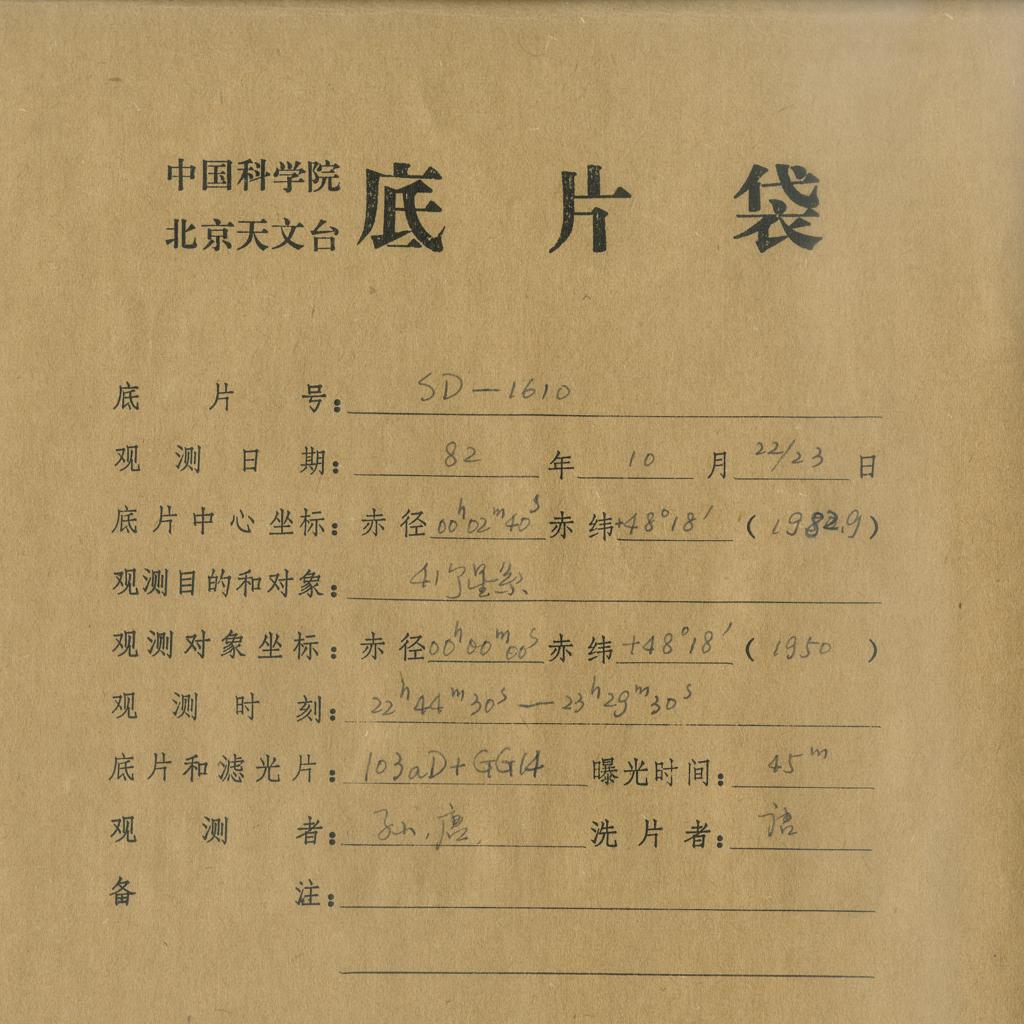 中国科学院
北京天文台
底片袋
底片号: SD-1610
观测日期: 82 年 10 月 22/23 日
底片中心坐标: 赤径 00h02m40s 赤纬 +48°18′ (1982.9)
观测目的和对象: 星系
观测对象坐标: 赤径 00h00m00s 赤纬 +48°18′ (1950)
观测时刻: 22h44m30s—23h29m30s
底片和滤光片: 103aD+GG14 曝光时间: 45m
观测者: 孙、唐 洗片者:
备注: